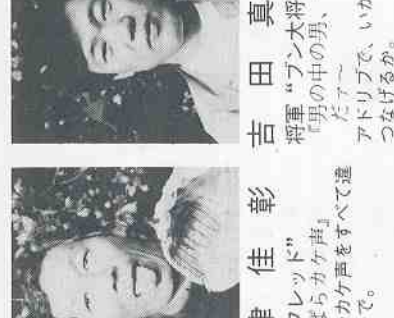 津 佳 彰
フレッド”
ばらカケ声』
カケ声をすべて違
で。
吉 田 真
将軍“ブン大将
『男の中の男、
だァ〜
アドリブで、いか
つなげるか。